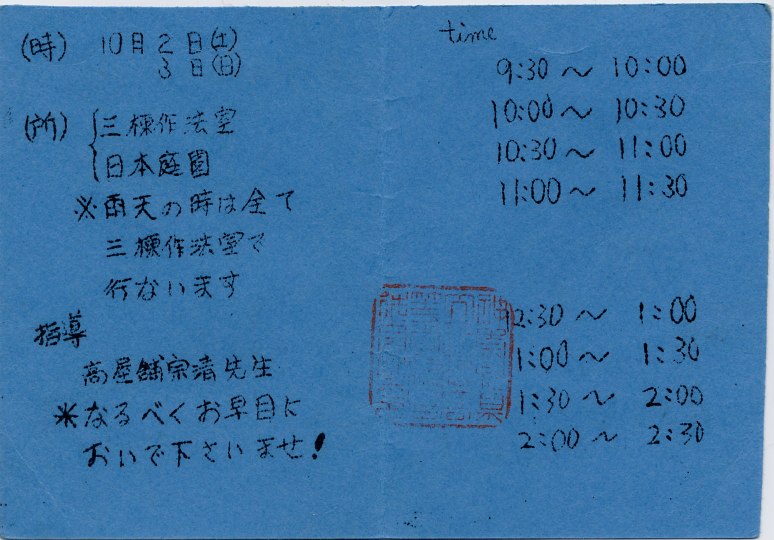 (時) 10月2日(土)
3日(日)
(所) 三棟作法室
日本庭園
※雨天の時は全て
三棟作法室で
行ないます
指導
高屋舗宗清先生
※なるべくお早目に
おいで下さいませ!
time
9:30〜10:00
10:00〜10:30
10:30〜11:00
11:00〜11:30
12:30〜1:00
1:00〜1:30
1:30〜2:00
2:00〜2:30